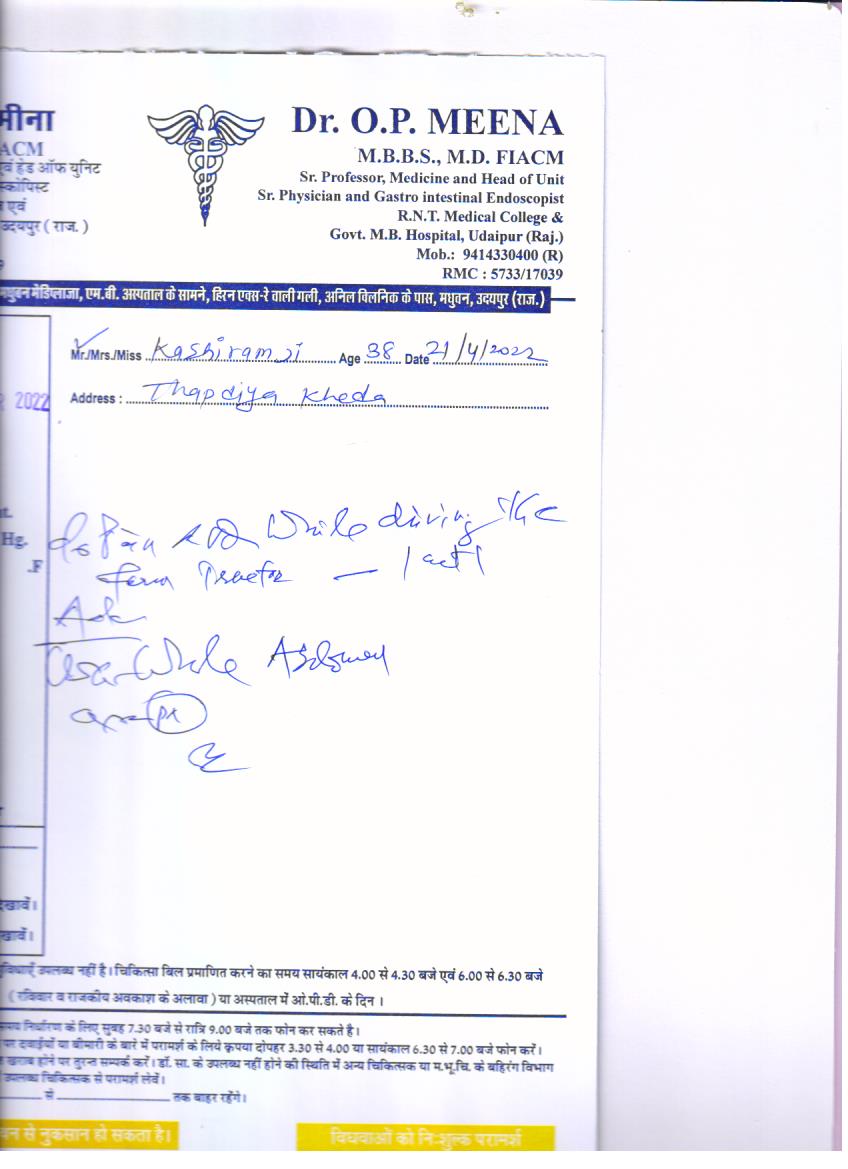 मीना
ACM
एवं हेड ऑफ यूनिट
स्कोपिस्ट
एवं
उदयपुर ( राज. )
Dr. O.P. MEENA
M.B.B.S., M.D. FIACM
Sr. Professor, Medicine and Head of Unit
Sr. Physician and Gastro intestinal Endoscopist
R.N.T. Medical College &
Govt. M.B. Hospital, Udaipur (Raj.)
Mob.: 9414330400 (R)
RMC : 5733/17039
मधुबन मेडिप्लाजा, एम.बी. अस्पताल के सामने, हिरन एक्स-रे वाली गली, अनिल क्लिनिक के पास, मधुवन, उदयपुर (राज.)
Mr./Mrs./Miss Kashiram Ji Age 38 Date 21/4/2022
2022 Address : Thapdiya Kheda
t.
Hg.
.F
While driving
While Abdomen
देखावें।
खावें।
उपलब्ध नहीं है। चिकित्सा बिल प्रमाणित करने का समय सायंकाल 4.00 से 4.30 बजे एवं 6.00 से 6.30 बजे
( रविवार व राजकीय अवकाश के अलावा ) या अस्पताल में ओ.पी.डी. के दिन ।
समय निर्धारण के लिए सुबह 7.30 बजे से रात्रि 9.00 बजे तक फोन कर सकते है।
पर दवाईयों या बीमारी के बारे में परामर्श के लिये कृपया दोपहर 3.30 से 4.00 या सायंकाल 6.30 से 7.00 बजे फोन करें।
खराब होने पर तुरन्त सम्पर्क करें। डॉ. सा. के उपलब्ध नहीं होने की स्थिति में अन्य चिकित्सक या म.भू.चि. के बहिरंग विभाग
उपलब्ध चिकित्सक से परामर्श लेवें।
से तक बाहर रहेंगे।
से नुकसान हो सकता है।
विधवाओं को निःशुल्क परामर्श